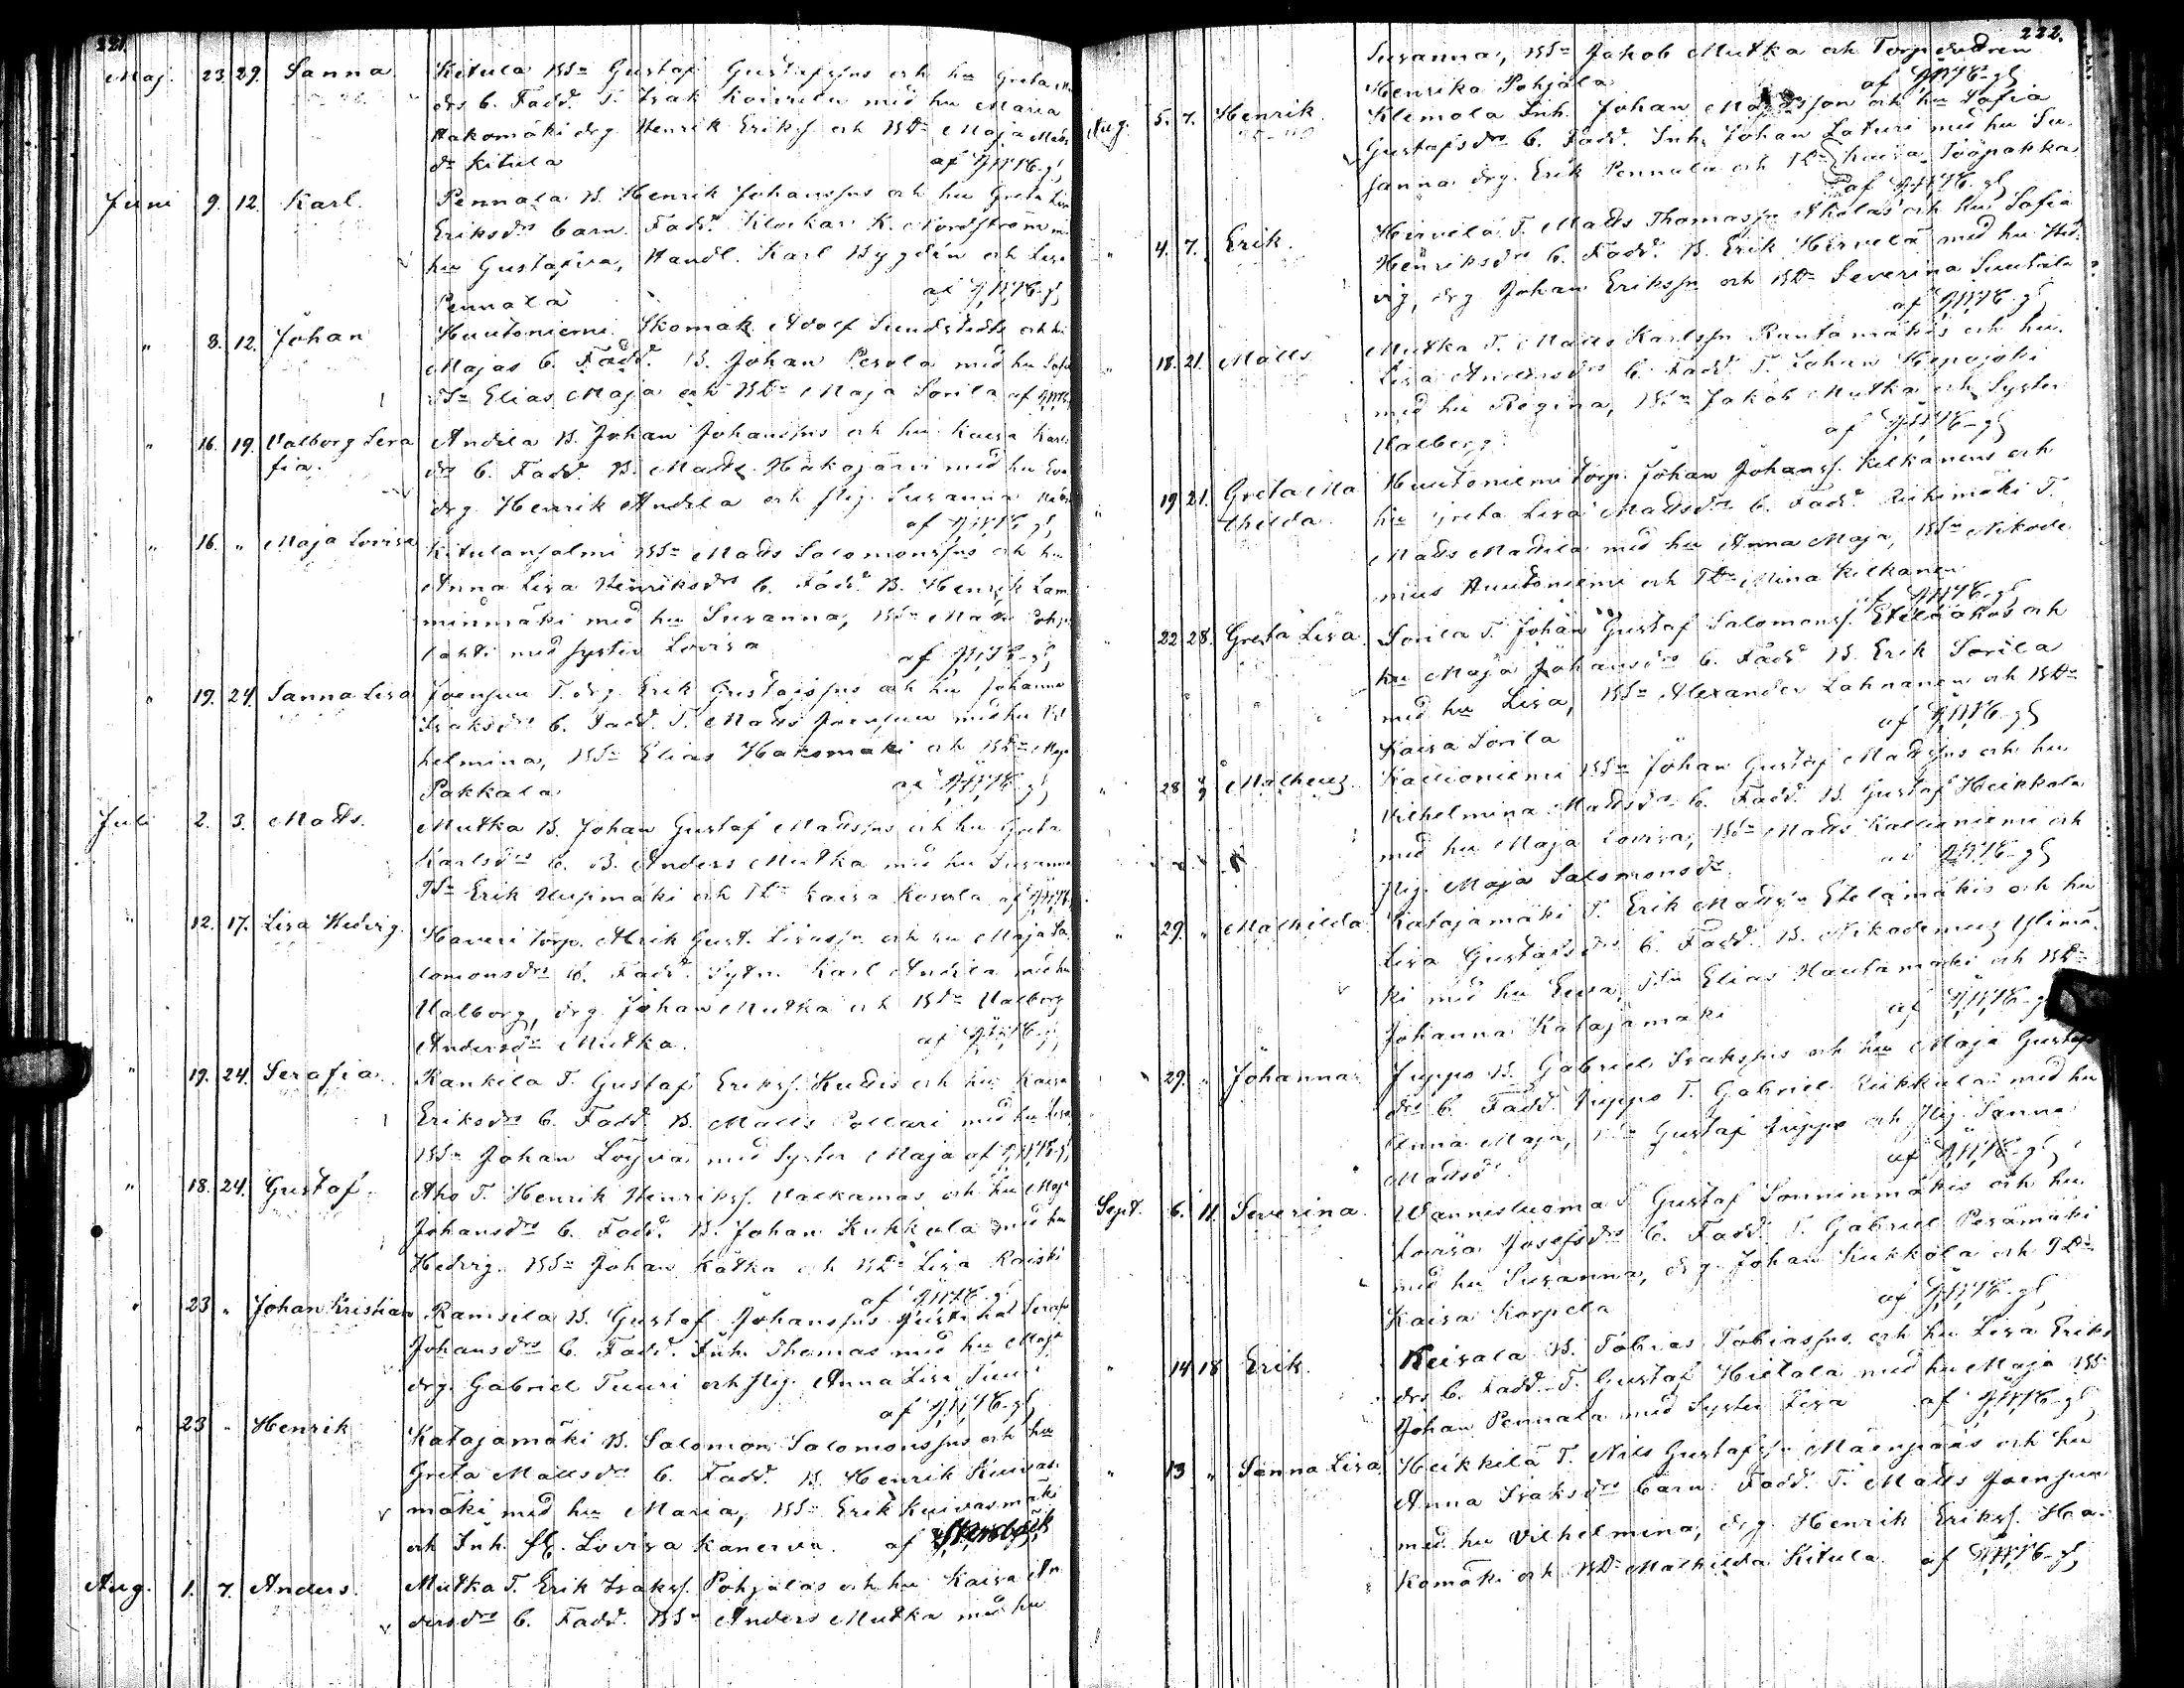 221.
Maj. 23 29. Sanna. Kitula BSn Gustaf Gustafsfns och hu Greta
drs b. Fadd. T. Isak med hu Maria
Hakomäki drg. Henrik Eriksf. och BDr Maja Mads
dr Kitula af
Juni 9. 12. Karl. Pennala B. Henrik Johansfns och hu Greta Lisa
Eriksdrs barn. Fadd. Klockar K. Nordström m.
hu Gustafva, Handl. Karl Bygdén och Lisa
Pennala af
" 8. 12. Johan Huutoniemi Skomak. Adolf Sundstedts och hu
Majas b. Fadd. B. Johan Perola med hu Sofia
Elias Maja och BDr Maja Sorila af
" 16. 19. Valborg Sera Andila B. Johan Johansfns och hu Kaisa Karls
fia. drs b. Fadd. B. Matts Hakojärvi med hu Eva
drg. Henrik Andila och Pig. Susanna
af
" 16. " Maja Lovisa Kitulansalmi BSn Mads Salomonsfns och hu
Anna Lisa Henriksdrs b. Fadd. B. Henrik Lam
minmäki med hu Susanna, BSn Mads Pohja
lahti med syster Lovisa
af
" 19. 24. Sanna Lisa Joensuu T. drg. Erik Gustafsfns och hu Johanna
Isaksdrs b. Fadd. T. Mads Joensuu med hu Vil
helmina, BSn Elias Hakomäki och BDr Maja
Pakkala af
Juli 2. 3. Matts. Mutka B. Johan Gustaf Madsfns och hu Greta
Karlsdrs b. B. Anders Mutka med hu Susanna
TSn Erik och TDr Kaisa Kosola af
" 12. 17. Lisa Hedvig. Haveri torp. Gust. och hu Maja Sa
lomonsdrs b. Fadd. Sytn. Karl Andila med hu
Valborg, drg. Johan Mutka och BDr Valborg
Andersdr Mutka. af
" 19. 24. Serafia. Rankila T. Gustaf Eriksf. Kudis och hu Kaisa
Eriksdrs b. Fadd. B. Matts Pollari med hu Lisa,
BSn Johan Löyvä med syster Maja af
" 18. 24. Gustaf. Aho T. Henrik Henriksf. Valkamas och hu Maja
Johansdrs b. Fadd. B. Johan Kukkola med hu
Hedvig. BSn Johan Kätkä och BDr Lisa Raiski
af
" 23 " Johan Kristian Ramsila B. Gustaf Johansfns Serafia
Johansdrs b. Fadd. Inh. Thomas med hu Maja
drg. Gabriel Tuuri och Pig. Anna Lisa Tuuri
af
" 23 " Henrik Katajamäki B. Salomon Salomonsfns och hu
Greta Mattsdrs b. Fadd. B. Henrik Kuivas
mäki med hu Maria, BSn Erik Kuivasmäki
och Inh. Lovisa Kanerva. af
Aug. 1. 7. Anders. Mutka T. Erik Isaksf. Pohjalas och hu Kaisa An
dersdrs b. Fadd. BSn Anders Mutka med hu
222.
Susanna, BSn Jakob Mutka och Torp
Henrika Pohjala af
Aug. 5. 7. Henrik. Klemola Inh. Johan Madsson och hu Sofia
Gustafsdrs b. Fadd. Inh. Johan Laturi med hu Su
sanna drg. Erik Pennala och TDr Kaisa Tööpakka
af
" 4. 7. Erik. Hirvelä T. Matts Thomasfn Aholas och hu Sofia
Henriksdrs b. Fadd. B. Erik Hirvelä med hu Hed
vig, drg Johan Eriksfn och BDr Severina Suutala
af
" 18. 21. Matts Mutka T. Matts Karlsfn Rautamäkis och hu
Lisa Andersdrs b. Fadd. T. Johan Hepojoki
med hu Regina, BSn Jakob Mutka och Syster
Valborg. af
" 19 21. Greta Ma Huutoniemi torp. Johan Johansf. Kelkanens och
thilda. hu Greta Lisa Madsdrs b. Fadd. Riihimäki T.
Mads Madila med hu Anna Maja, BSn Nikode
mus Huutoniemi och TDr Mina Kelkanen
af
" 22 28. Greta Lisa. Sorila T. Johan Gustaf Salomonsf. Eteläahos och
hu Maja Johansdrs b. Fadd B. Erik Sorila
med hu Lisa, BSn Alexander Lahnanen och BDr
Kaisa Sorila af
" 28 Matheus. Kallioniemi BSn Johan Gustaf Madsfns och hu
Vilhelmina Madsdrs b. Fadd. B. Gustaf Heikkola
med hu Maja Lovisa, BSn Mads Kallioniemi och
Pig. Maja Salomonsdr af
" 29. " Mathilda Katajamäki T. Erik Madsfn Etelämäkis och hu
Lisa Gustafsdrs b. Fadd. B. Nikodemus Ylimä
ki med hu Eeva, TSn Elias Hautamäki och BDr
Johanna Katajamäki af
" 29. " Johanna. Juppo B. Gabriel Isaksfns och hu Maja Gustafs
drs b. Fadd. Juppo T. Gabriel Kukkula med hu
Anna Maja, Gustaf Juppo och Pig. Sanna
Madsdr af
Sept. 6. 11. Severina. Wannisluoma T. Gustaf Sonninmäkis och hu
Lovisa Josefsdrs b. Fadd. T. Gabriel Perämäki
med hu Susanna, drg. Johan Kukkola och TDr
Kaisa Korpela af
" 14 18 Erik. Keisala B. Tobias Tobiasfns och hu Lisa Eriks
drs b. Fadd. T. Gustaf Hietala med hu Maja BS
Johan Pennala med Syster Lisa af
" 13 " Sanna Lisa. Heikkilä T. Nils Gustafsfn Mäenpääs och hu
Anna Isaksdrs barn. Fadd. T. Matts Joensuu
med hu Vilhelmina, drg. Henrik Eriksf. Ha
komäki och BDr Mathilda Kitula. af